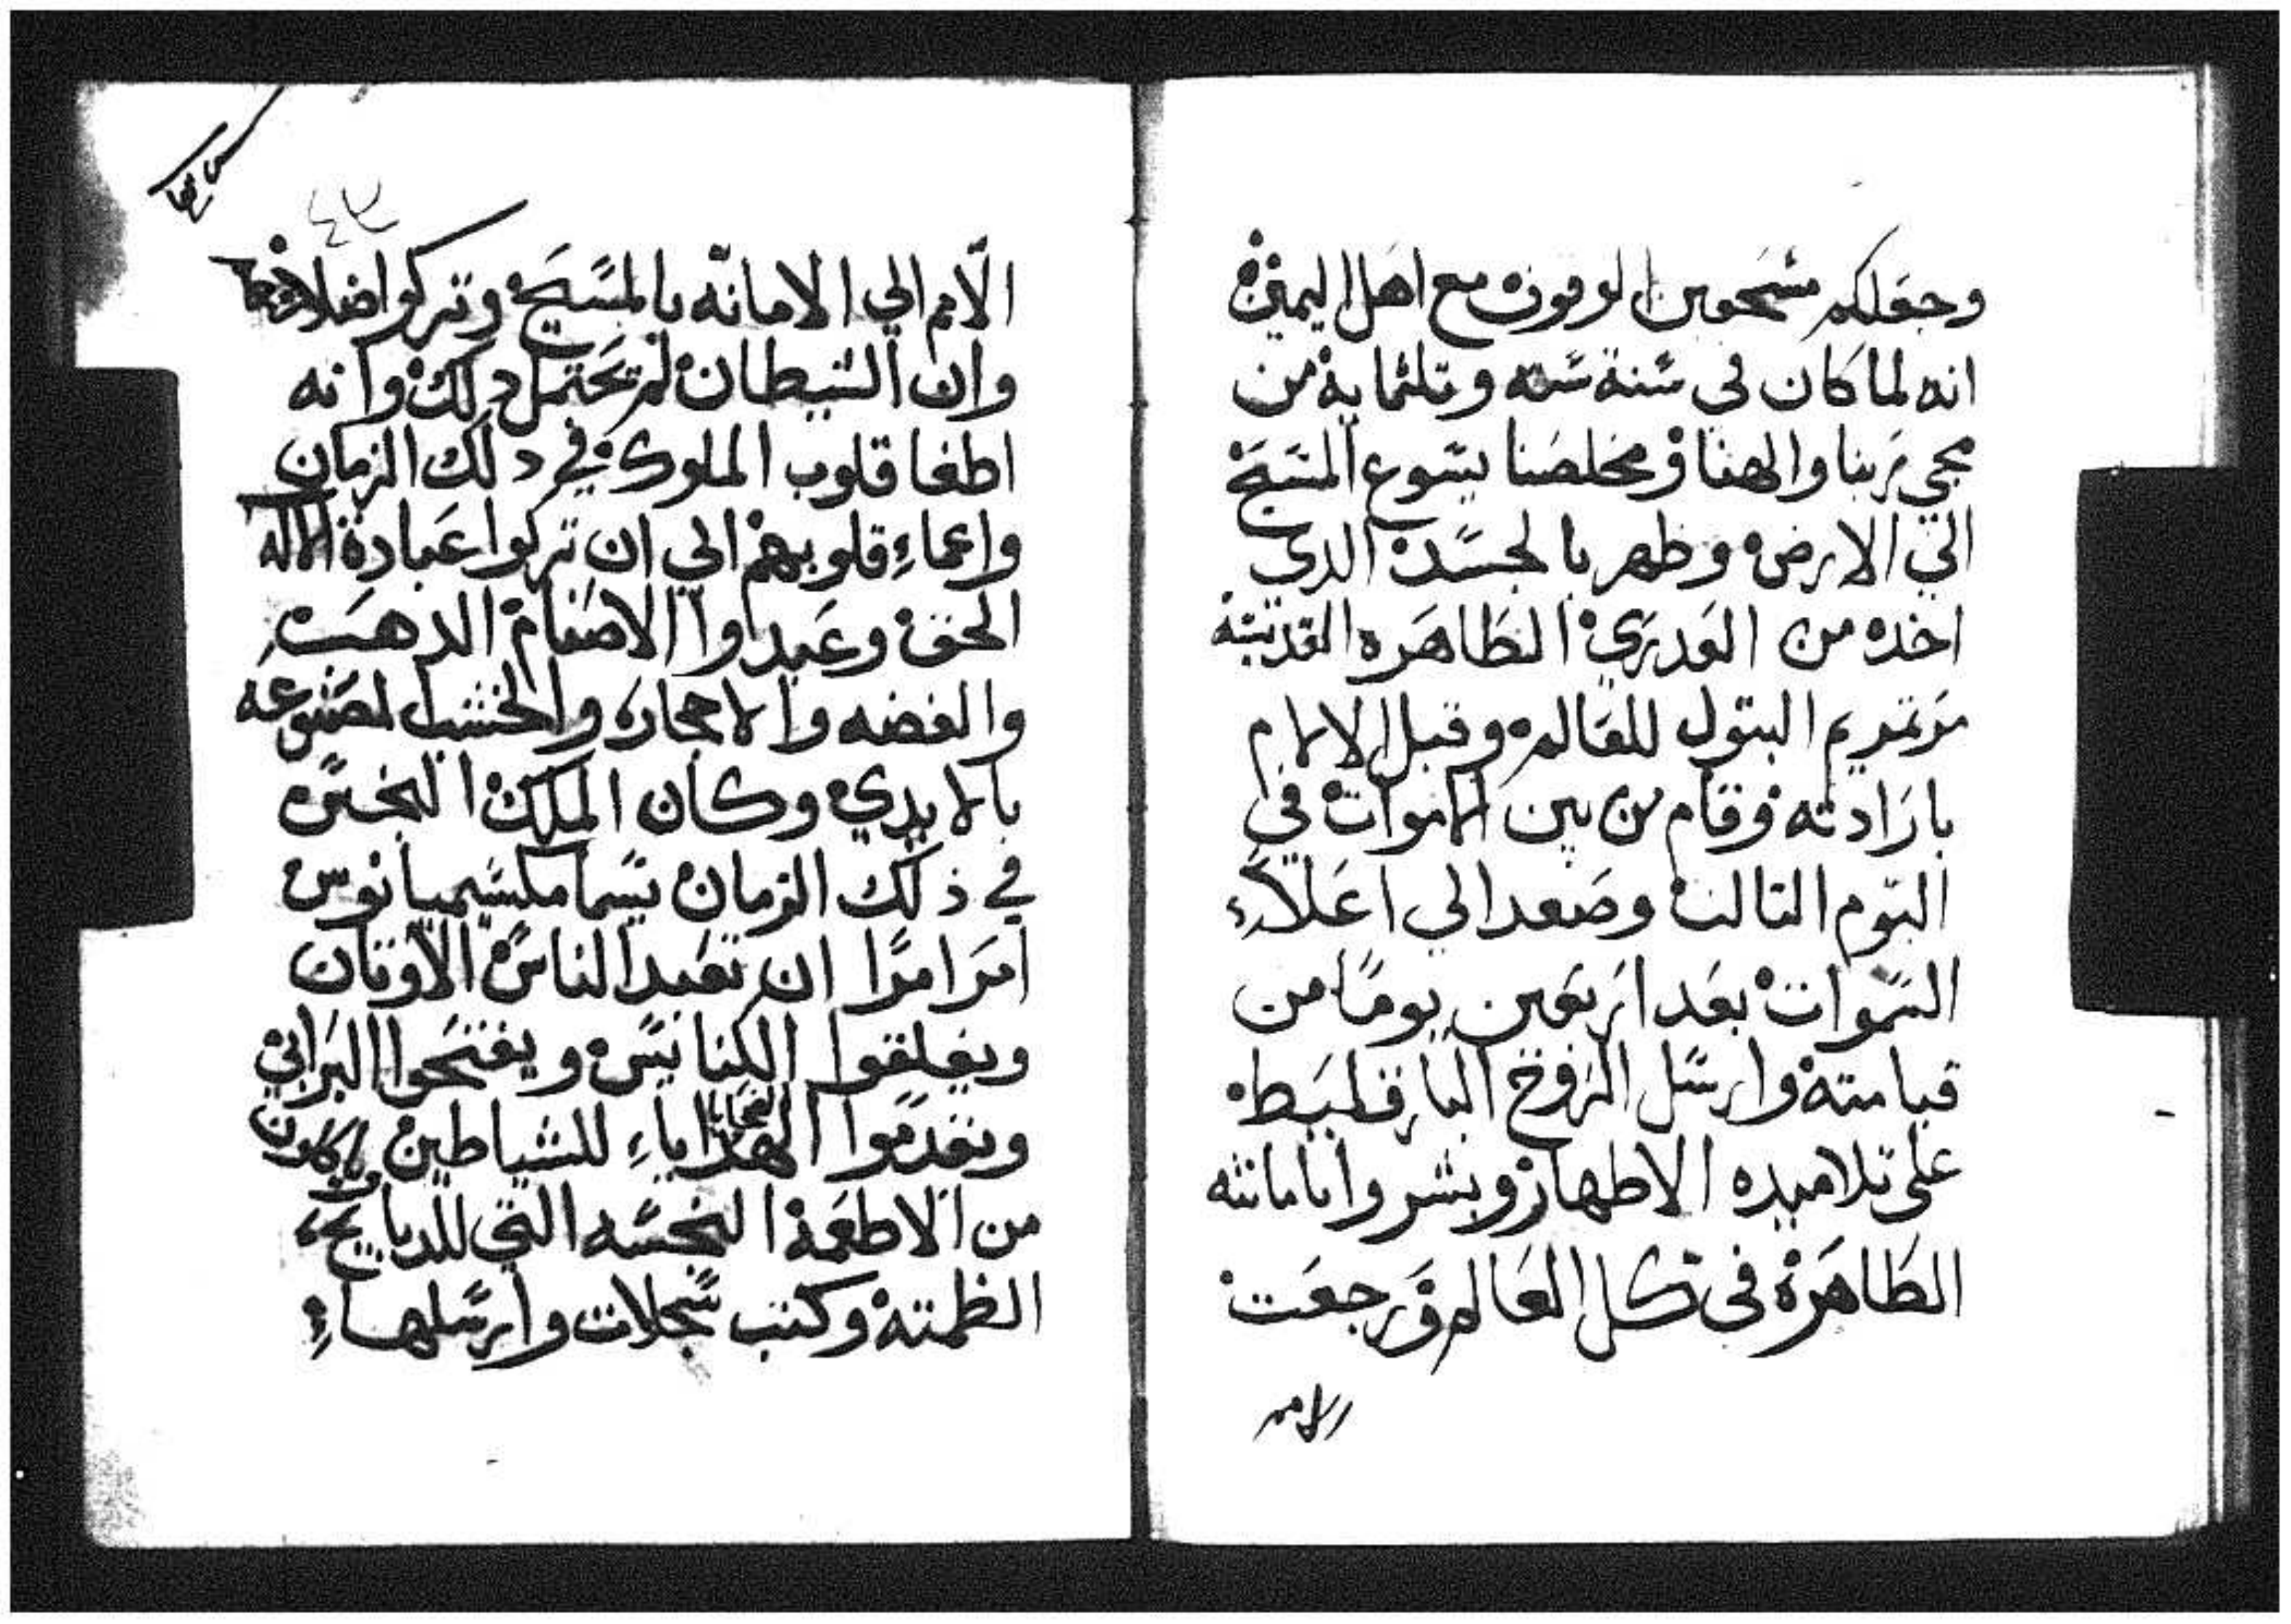 وجعلكم مستحقين الوقوف مع اهل اليمين
انه لما كان في سنة سته وتلثماية من
مجي ربنا والهنا ومخلصنا يسوع المسيح
الي الارض وظهر بالجسد الدي
اخده من العدري الطاهره القديسه
مرتمريم البتول للعالم وقبل الالام
بارادته وقام من بين الاموات في
اليوم التالت وصعد الي اعلاء
السموات بعد اربعين يوما من
قيامته وارسل الروح البارقليط
على تلاميده الاطهار وبشروا بامانته
الطاهرة في كل العالم ورجعت
الامم
الامم الي الامانه بالمسيح وتركوا ضلالاتهم
وان الشيطان لم تحتمل دلك وانه
اطغا قلوب الملوك في دلك الزمان
واعماء قلوبهم الي ان تركوا عبادة الاله
الحق وعبدوا الاصنام الدهب
والفضه والاحجاره والخشب المصنوعه
بالايدي وكان الملك النجس
في ذلك الزمان يسما مكسيميانوس
امر امرا ان تعبد الناس الاوتان
ويغلقوا الكنايس ويفتحوا البرابي
ويقدموا الضحايا الهداياء للشياطين وياكلون
من الاطعمة النجسه التي للدبايح
الظمته وكتب سجلات وارسلها